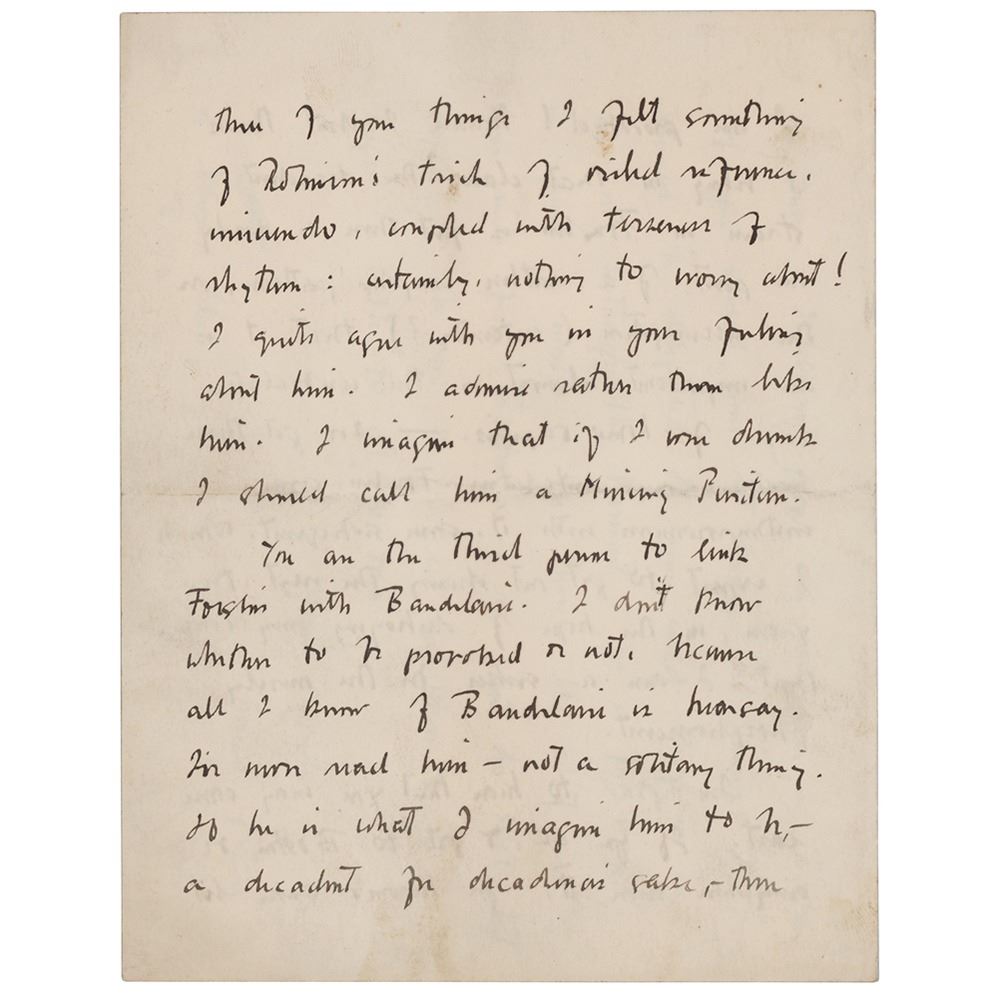 three of your things I felt something
of Robinson's trick of veiled reference,
innuendo, coupled with terseness of
rhythm: certainly, nothing to worry about!
I quite agree with you in your feeling
about him. I admire rather than like
him. I imagine that if I were drunk
I should call him a Mincing Puritan.
You are the third person to link
with Baudelaire. I don't know
whether to be provoked or not, because
all I know of Baudelaire is hearsay.
I've never read him – not a solitary thing.
If he is what I imagine him to be, –
a decadent for decadence's sake, – then